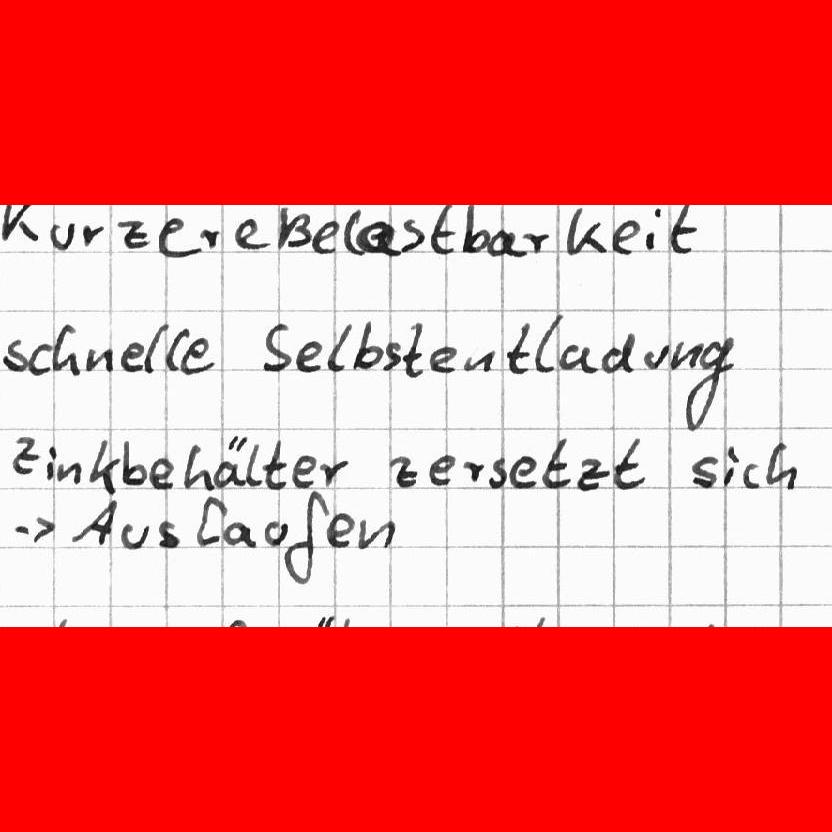 Kurzere Belastbarkeit
schnelle Selbstentladung
Zinkbehälter zersetzt sich
-> Auslaufen